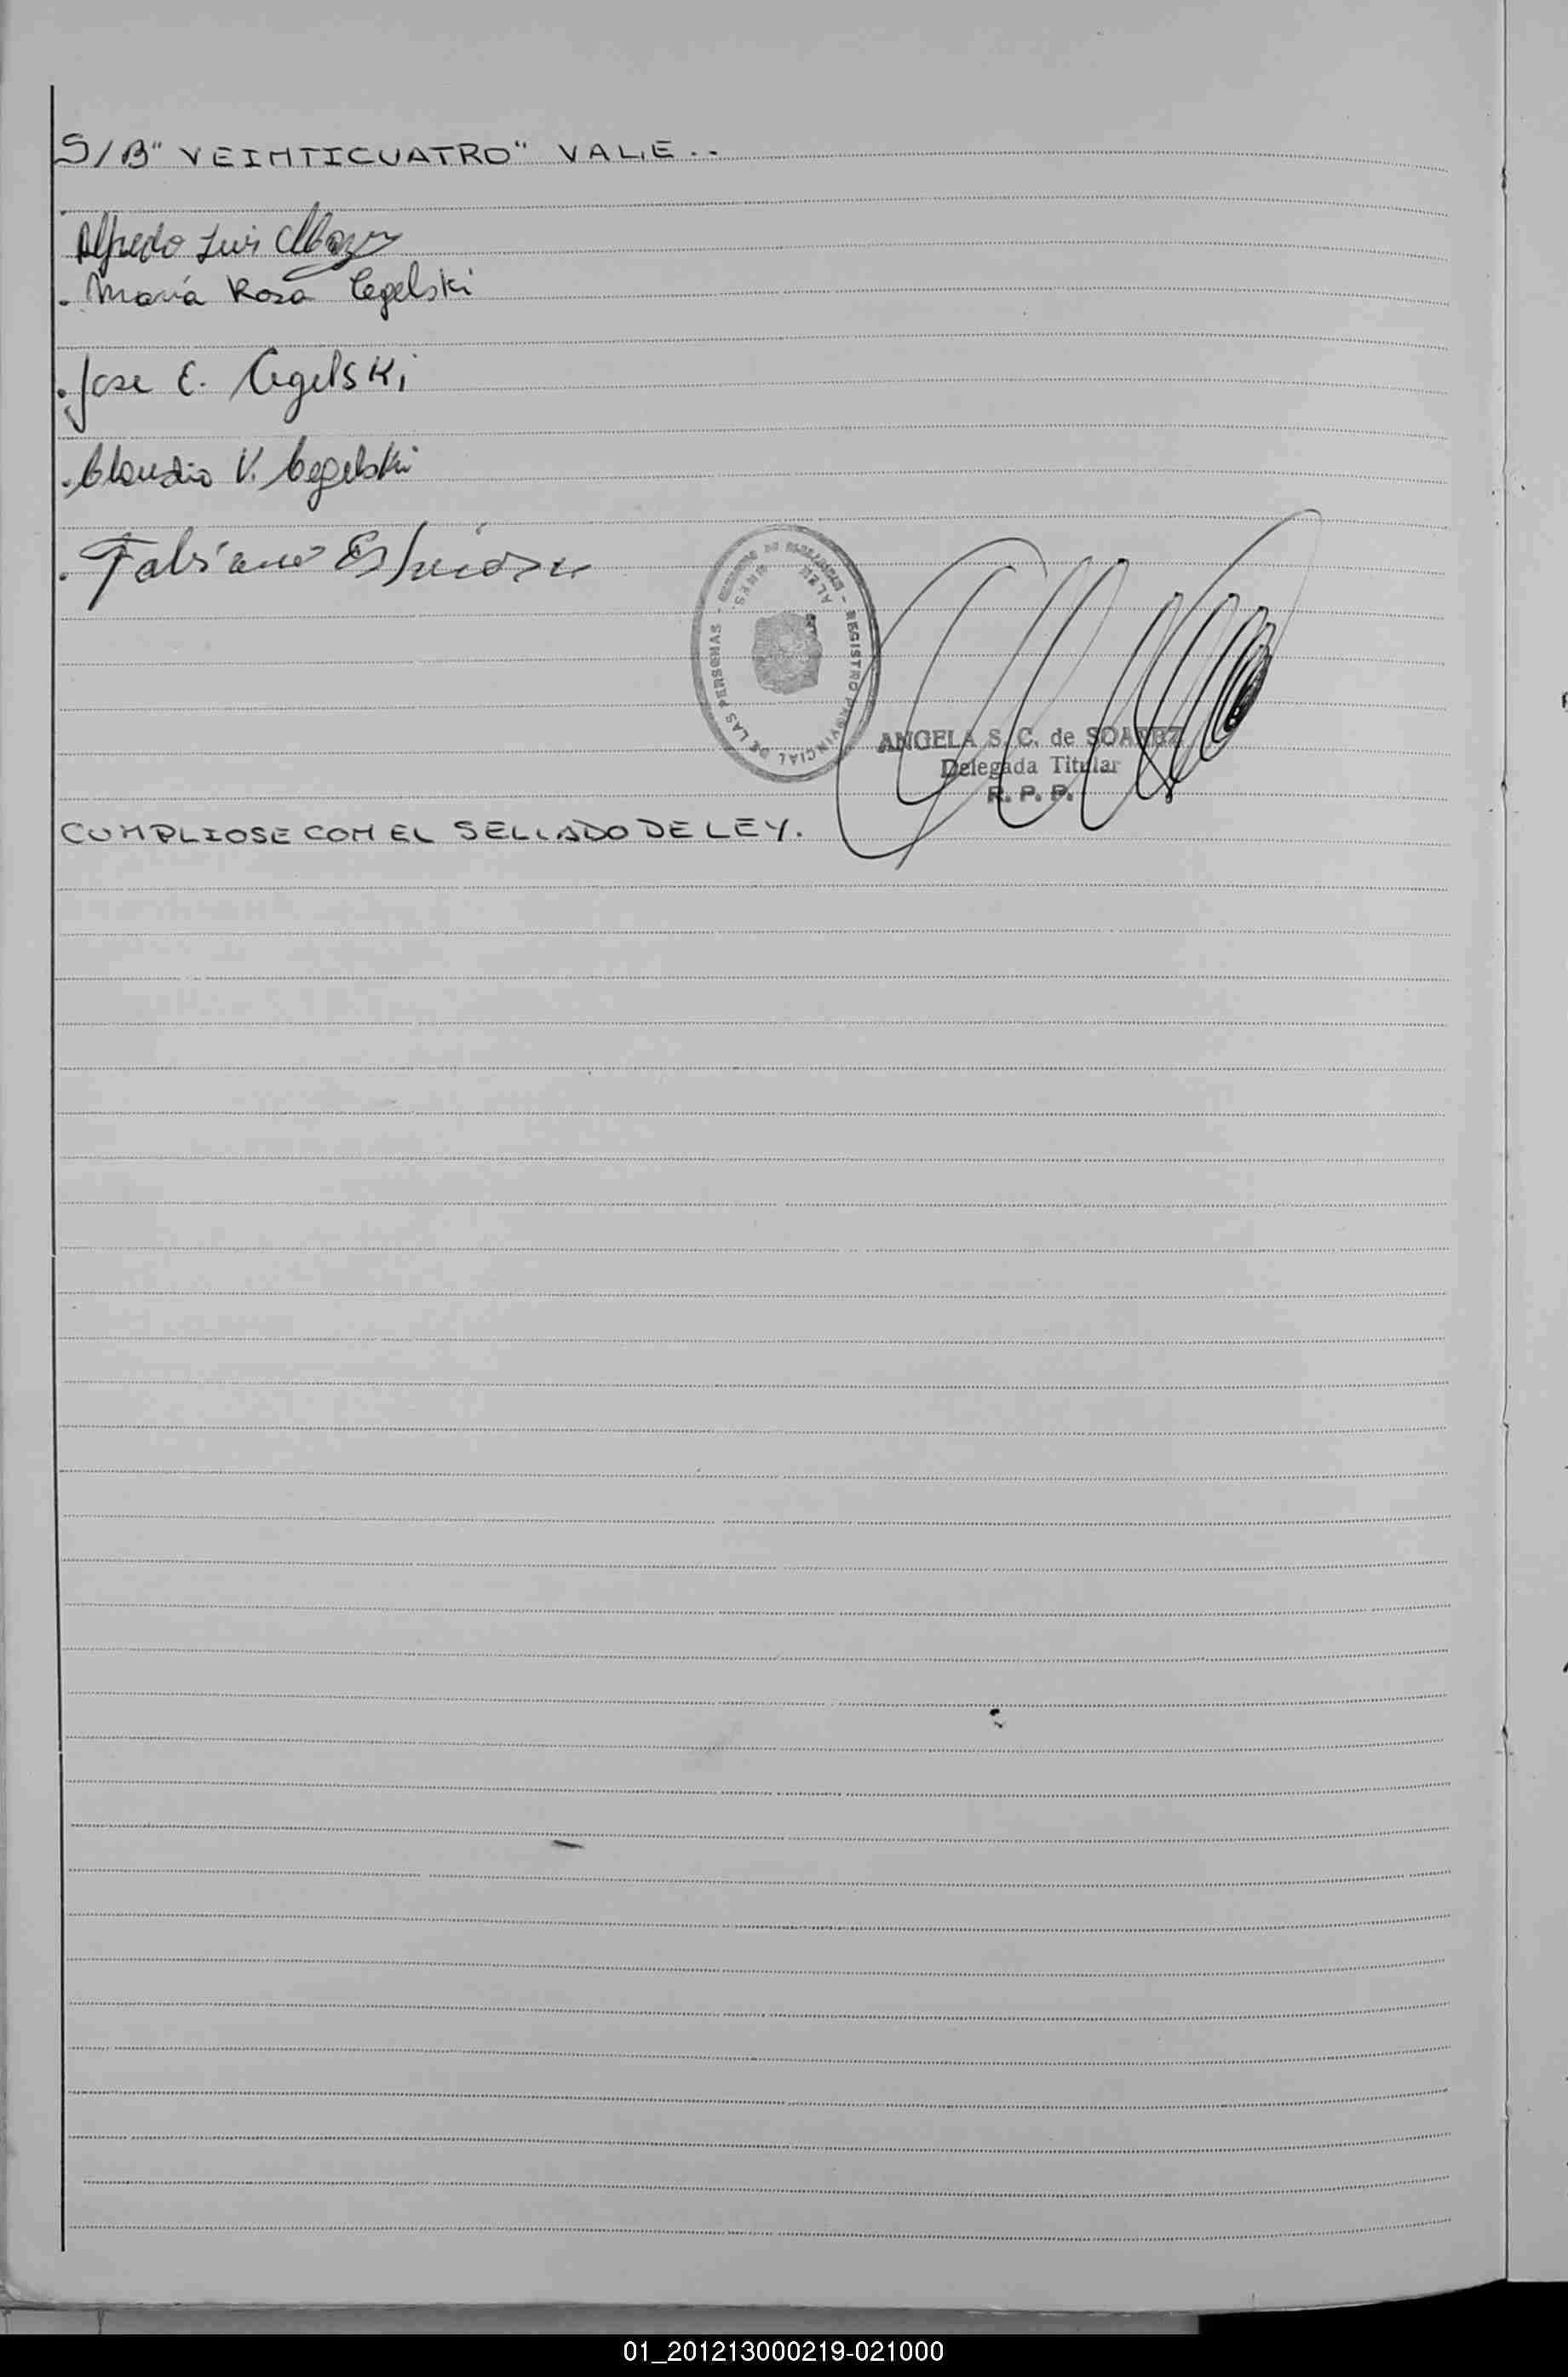 S/B "VEINTICUATRO" VALE..
Alfredo Luis Mazur
. María Rosa Cegelski
. Jose E. Cegelski
. Claudio V. Cegelski
. Fabiano
REGISTRO PROVINCIAL DE LAS PERSONAS -
ANGELA S. C. de SOAREZ
Delegada Titular
R. P. P.
CUMPLIOSE CON EL SELLADO DE LEY.
01_201213000219-021000